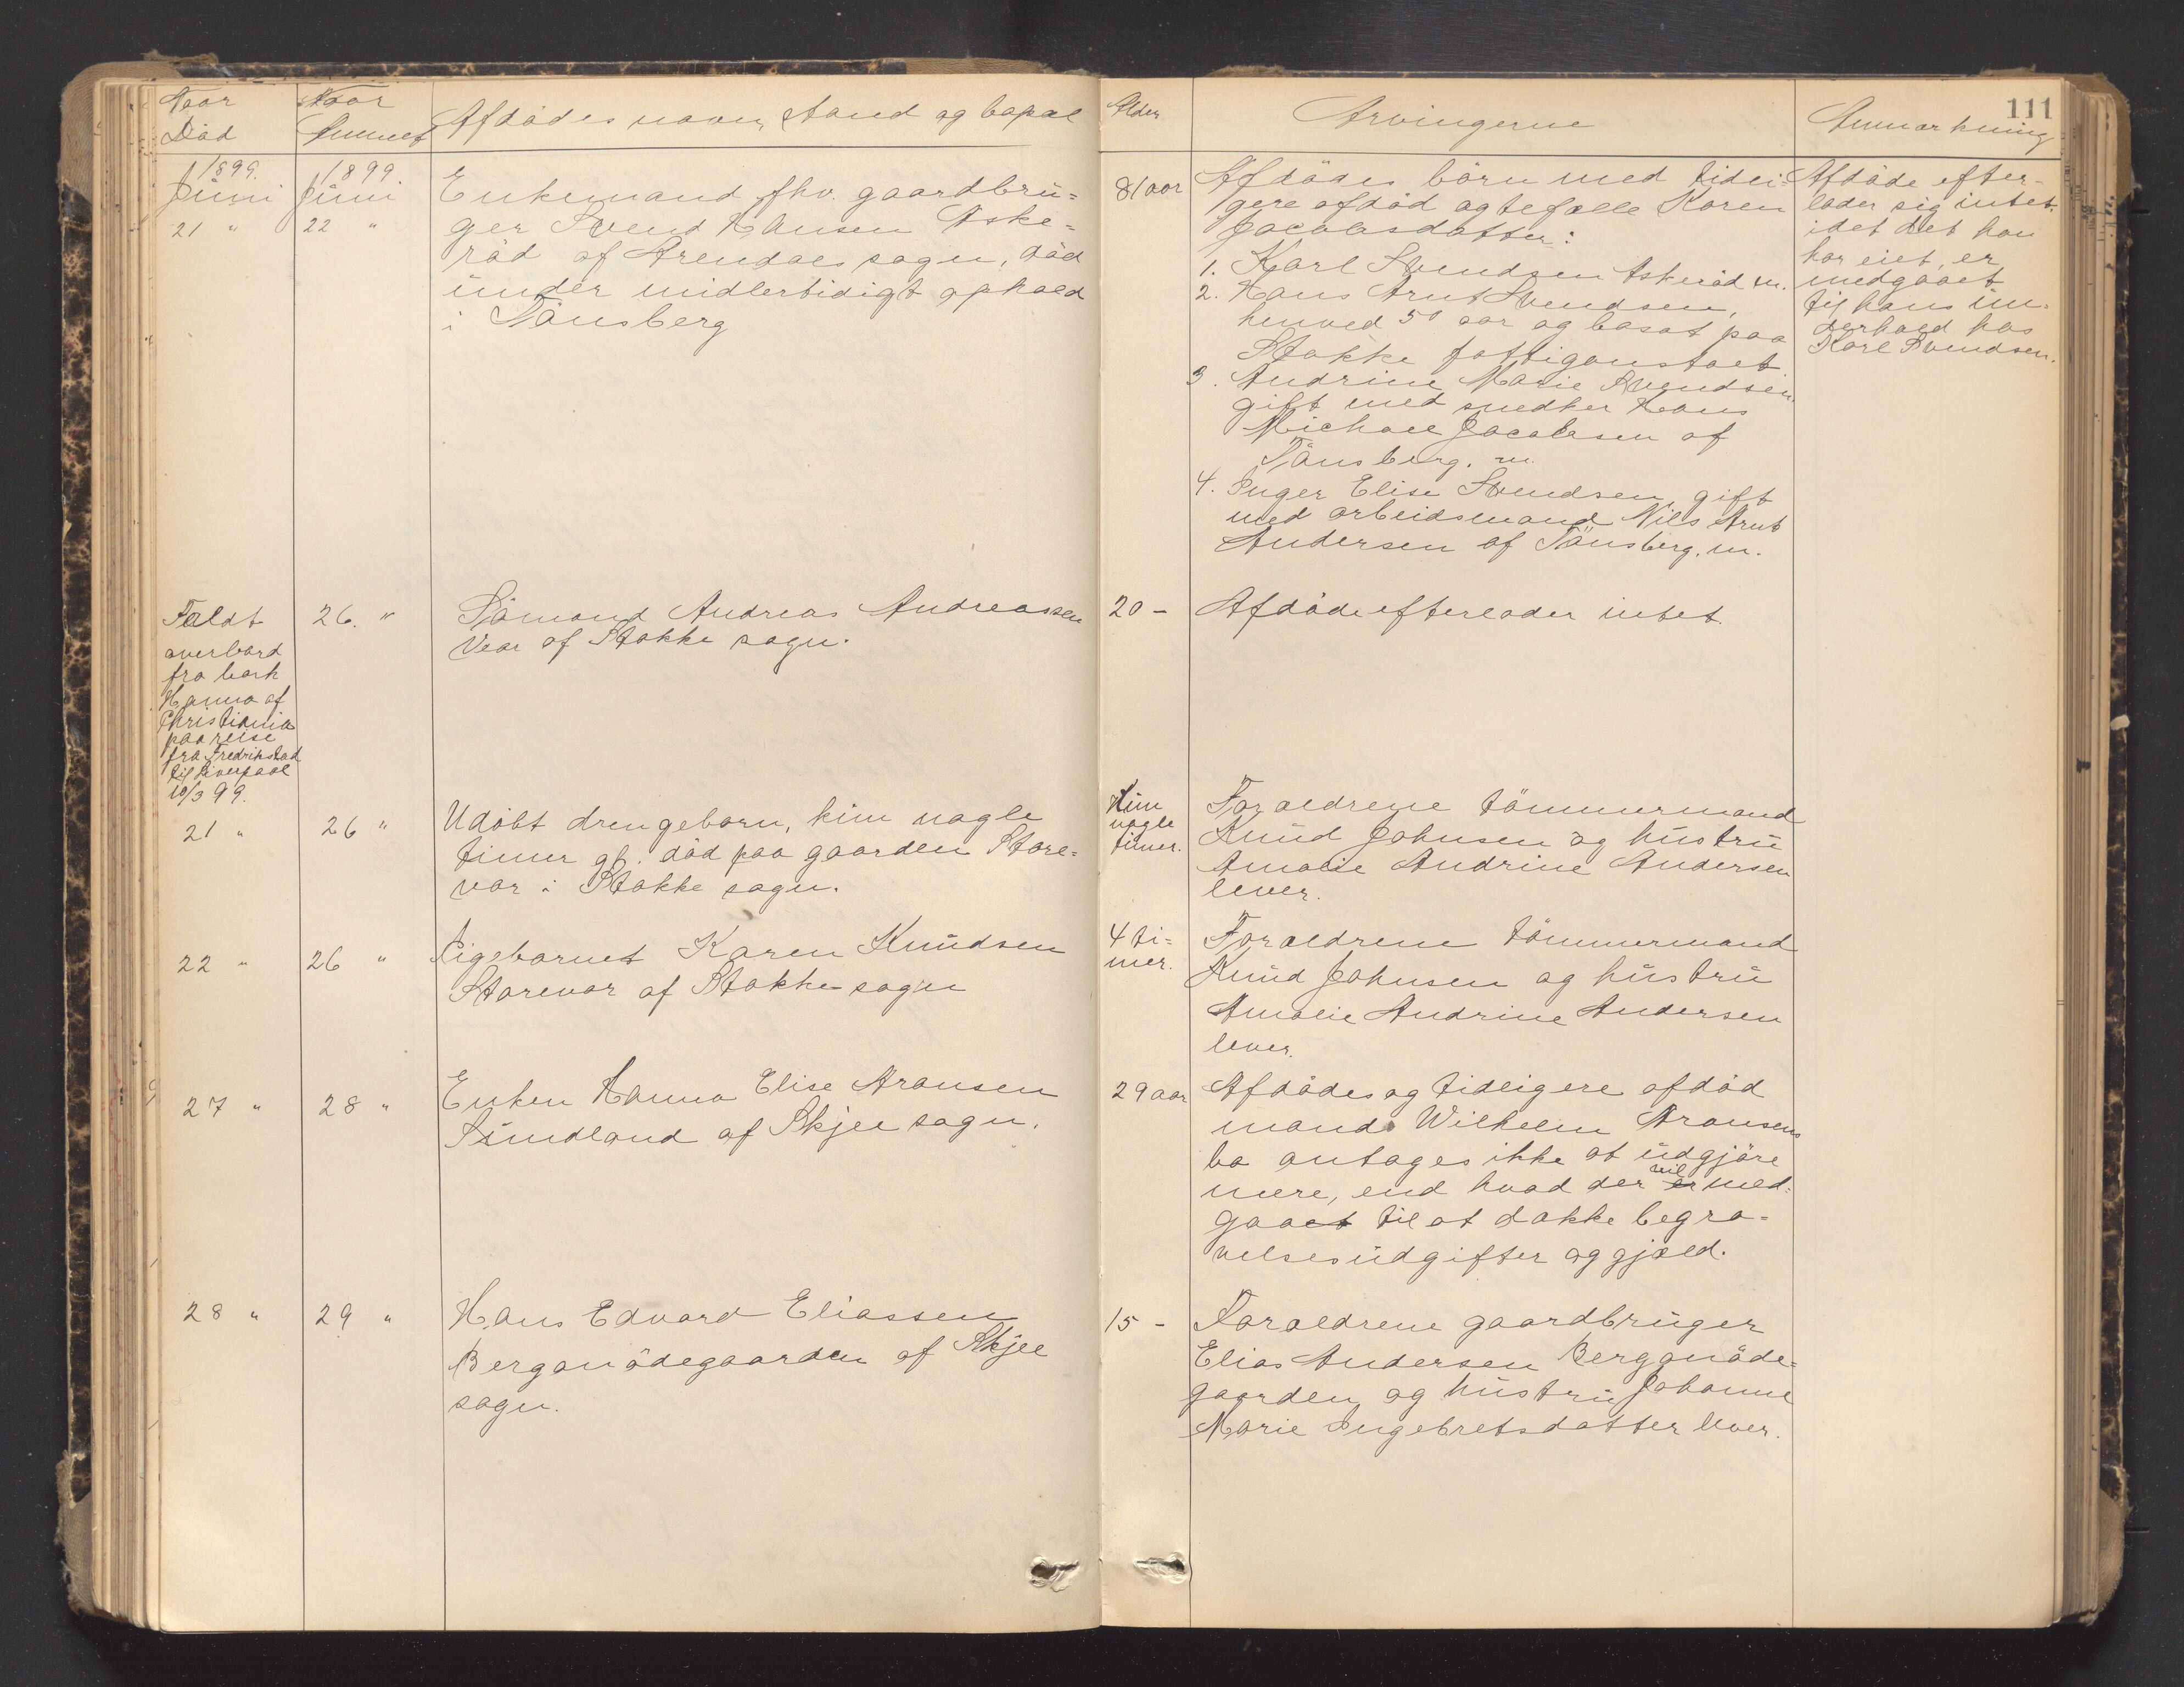 Naar
Död
Naar
Anmeldt
Afdödes navn, stand og bopæl
Alder
Arvingerne
111
Anmærkning
1899.
Juni
21 "
1899
Juni
22 "
Enkemand fhv. gaardbru=
ger Svend Hansen Aske=
röd af Arendals sogn, död
under midlertidigt ophold
i Tönsberg
81 aar
Afdödes börn med tidli=
gere afdöd ægtefælle Karen
Jacobsdatter:
1. Karl Svendsen Askeröd m.
2. Hans Arnt Svendsen,
henved 50 aar og bosat paa
Stokke fattiganstalt
3. Andrine Marie Svendsen
gift med snedker Hans
Michael Jacobsen af
Tönsberg. m.
4. Inger Elise Svendsen, gift
med arbeidsmand Nils Arnt
Andersen af Tönsberg. m.
Afdöde efter-
lader sig intet,
idet det han
har eiet, er
medgaaet
til hans un-
derhold hos
Karl Svendsen.
Faldt
overbord
fra bark
Hanna af
Christiania
paa reise
fra Fredrikstad
til Liverpool
10/3 99.
26. "
Sömand Andreas Andreassen
Vear af Stokke sogn.
20 -
Afdöde efterlader intet.
21 "
26 "
Udöbt drengebarn, kun nogle
timer gl. död paa gaarden Store=
var i Stokke sogn.
Kun
nogle
timer.
Forældrene tömmermand
Knud Johnsen og hustru
Amalie Andrine Andersen
lever.
22 "
26 "
Pigebarnet Karen Knudsen
Storevar af Stokke sogn
4 ti=
mer.
Forældrene tömmermand
Knud Johnsen og hustru
Amalie Andrine Andersen
lever.
27 "
28 "
Enken Hanna Elise Aransen
Sundland af Skjee sogn.
29 aar
Afdödes og tidligere afdöd
mands Wilhelm Aransens
bo antages ikke at udgjöre
mere, end hvad der er vil med=
gaaet til at dække begra=
velsesudgifter og gjæld.
28 "
29 "
Hans Edvard Eliassen
Berganödegaarden af Skjee
sogn.
15 -
Forældrene gaardbruger
Elias Andersen Berganöde=
gaarden og hustru Johanne
Marie Ingebretsdatter lever.